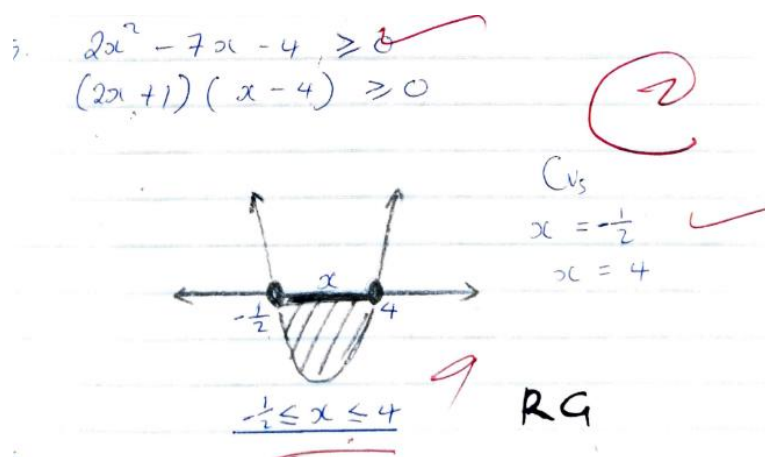 2x² - 7x - 4 ≥ 0
(2x + 1)(x - 4) ≥ 0
2
CVs
x = -1/2
x = 4
x
-1/2
4
-1/2 ≤ x ≤ 4
RG